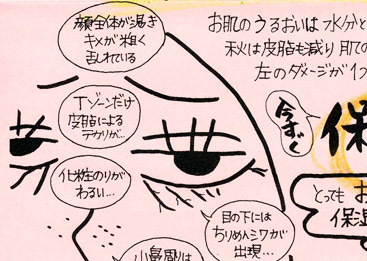 顔全体が渇き
キメが粗く
乱れている
お肌のうるおいは水分と
秋は皮脂も減り肌の
左のダメージが1つ
Tゾーンだけ
皮脂による
テカリが…
今すぐ
保
化粧性のりが
わるい…
とっても お
保湿
目の下には
ちりめんジワが
出現…
小鼻周りは